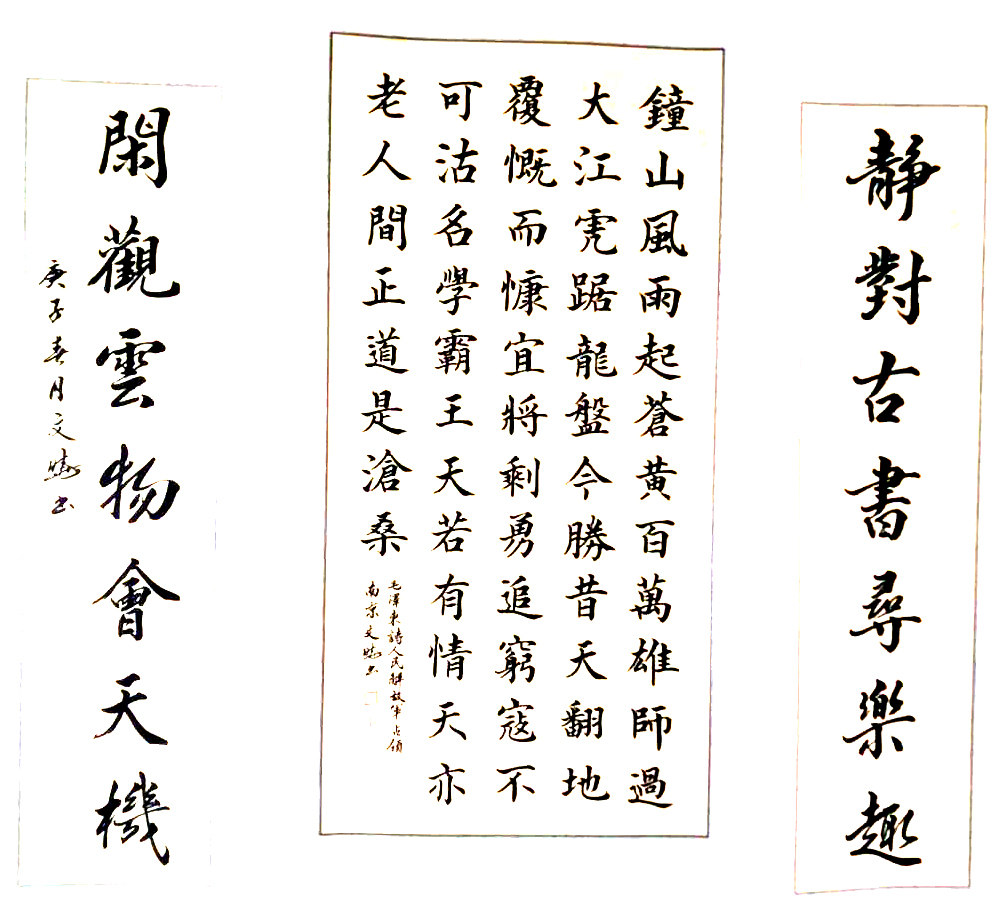 靜對古書尋樂趣
鐘山風雨起蒼黃百萬雄師過
大江虎踞龍盤今勝昔天翻地
覆慨而慷宜將剩勇追窮寇不
可沽名學霸王天若有情天亦
老人間正道是滄桑
毛澤東詩人民解放軍占領
南京文曉書
閑觀雲物會天機
庚子春月文曉書